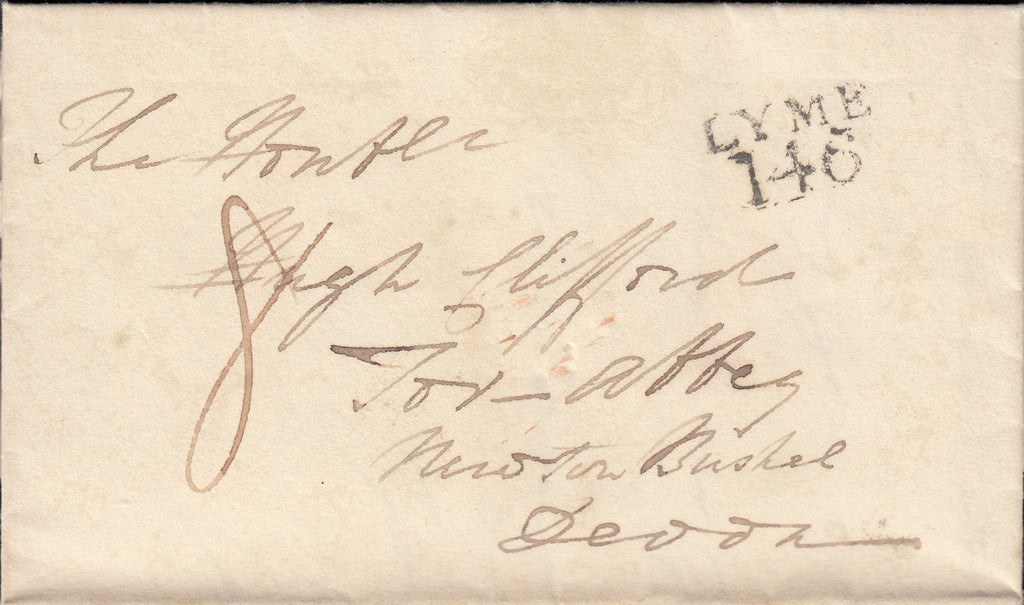 The Honble
LYME
146
8
Hugh Clifford
Tor-abbey
Newton Bushel
Devon